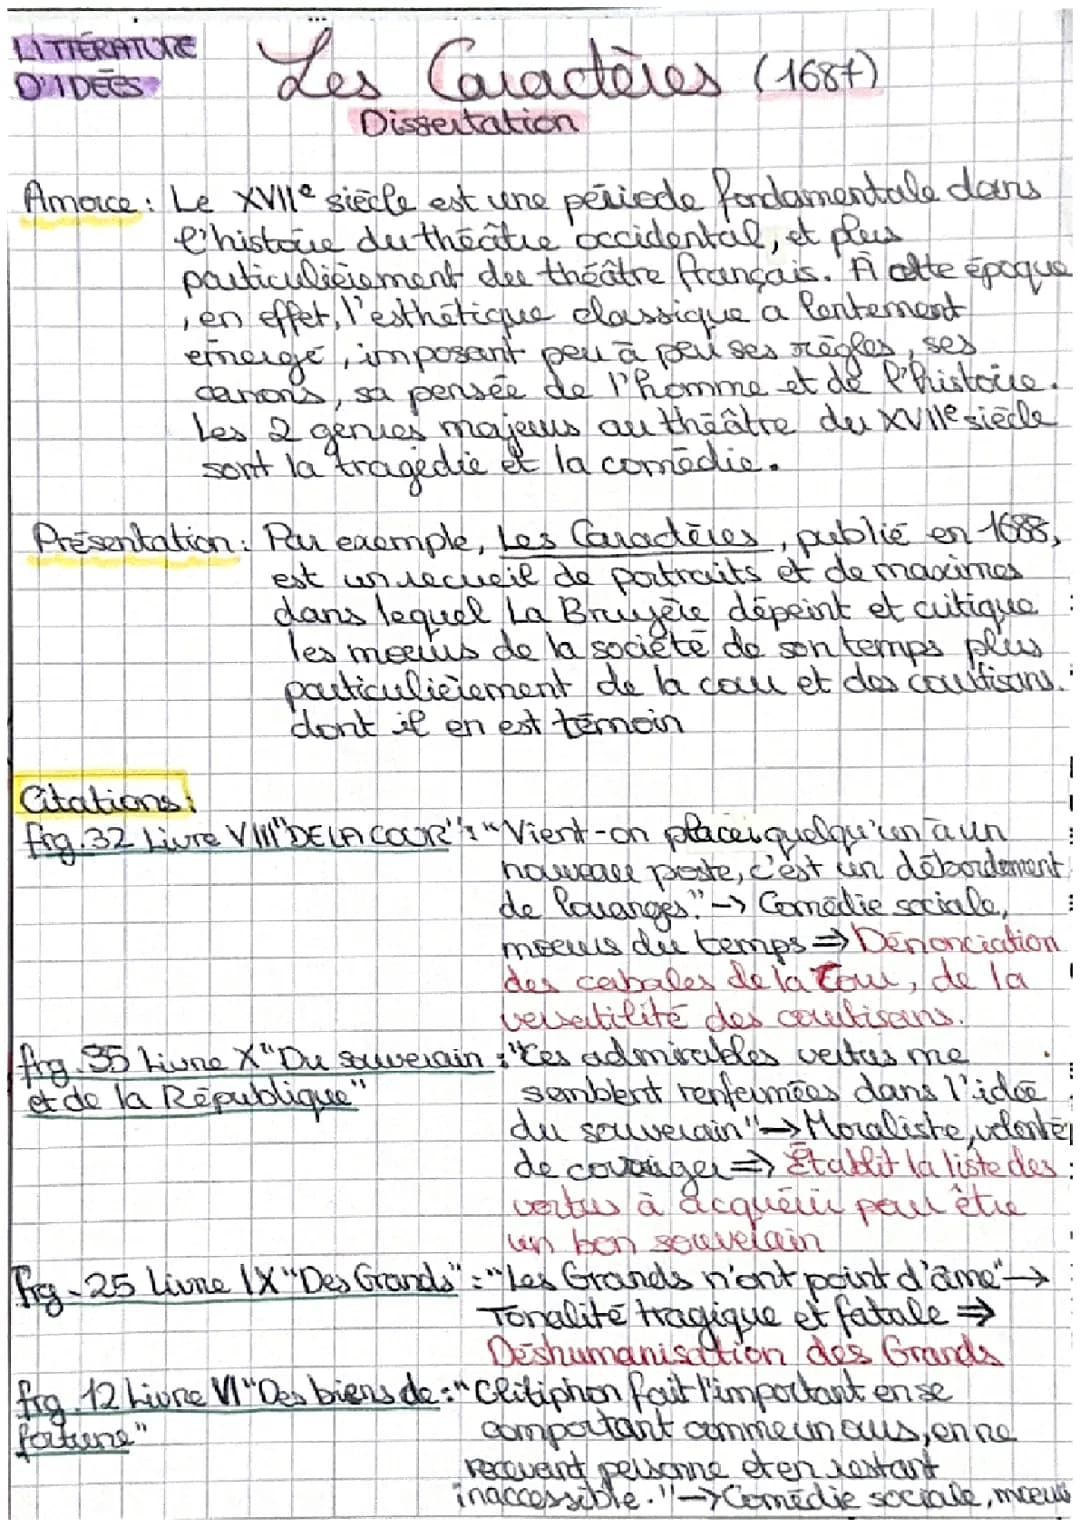 LITTÉRATURE
D'IDÉES
Les Caractères (1687)
Dissertation
Amorce : Le XVIIe siècle est une période fondamentale dans
l'histoire du théâtre occidental, et plus
particulièrement du théâtre français. À cette époque
, en effet, l'esthétique classique a lentement
émergé, imposant peu à peu ses règles, ses
canons, sa pensée de l'homme et de l'histoire.
Les 2 genres majeurs au théâtre du XVIIe siècle
sont la tragédie et la comédie.
Présentation : Par exemple, Les Caractères, publié en 1688,
est un recueil de portraits et de maximes
dans lequel La Bruyère dépeint et critique
les moeurs de la société de son temps plus
particulièrement de la cour et des courtisans.
dont il en est témoin
Citations :
frg.32 Livre VIII "DE LA COUR" : "Vient-on placer quelqu'un à un
nouveau poste, c'est un débordement
de louanges." → Comédie sociale,
moeurs du temps ⇒ Dénonciation
des cabales de la Cour, de la
versatilité des courtisans.
frg.35 Livre X "Du souverain : "Ces admirables vertus me
et de la République"
semblent renfermées dans l'idée
du souverain" → Moraliste, volonté
de corriger ⇒ Établit la liste des
vertus à acquérir pour être
un bon souverain
frg.25 Livre IX "Des Grands" : "Les Grands n'ont point d'âme" →
Tonalité tragique et fatale ⇒
Déshumanisation des Grands
frg.12 Livre VI "Des biens de : "Clitiphon fait l'important en se
fortune"
comportant comme un ours, en ne
recevant personne et en restant
inaccessible." → Comédie sociale, moeurs